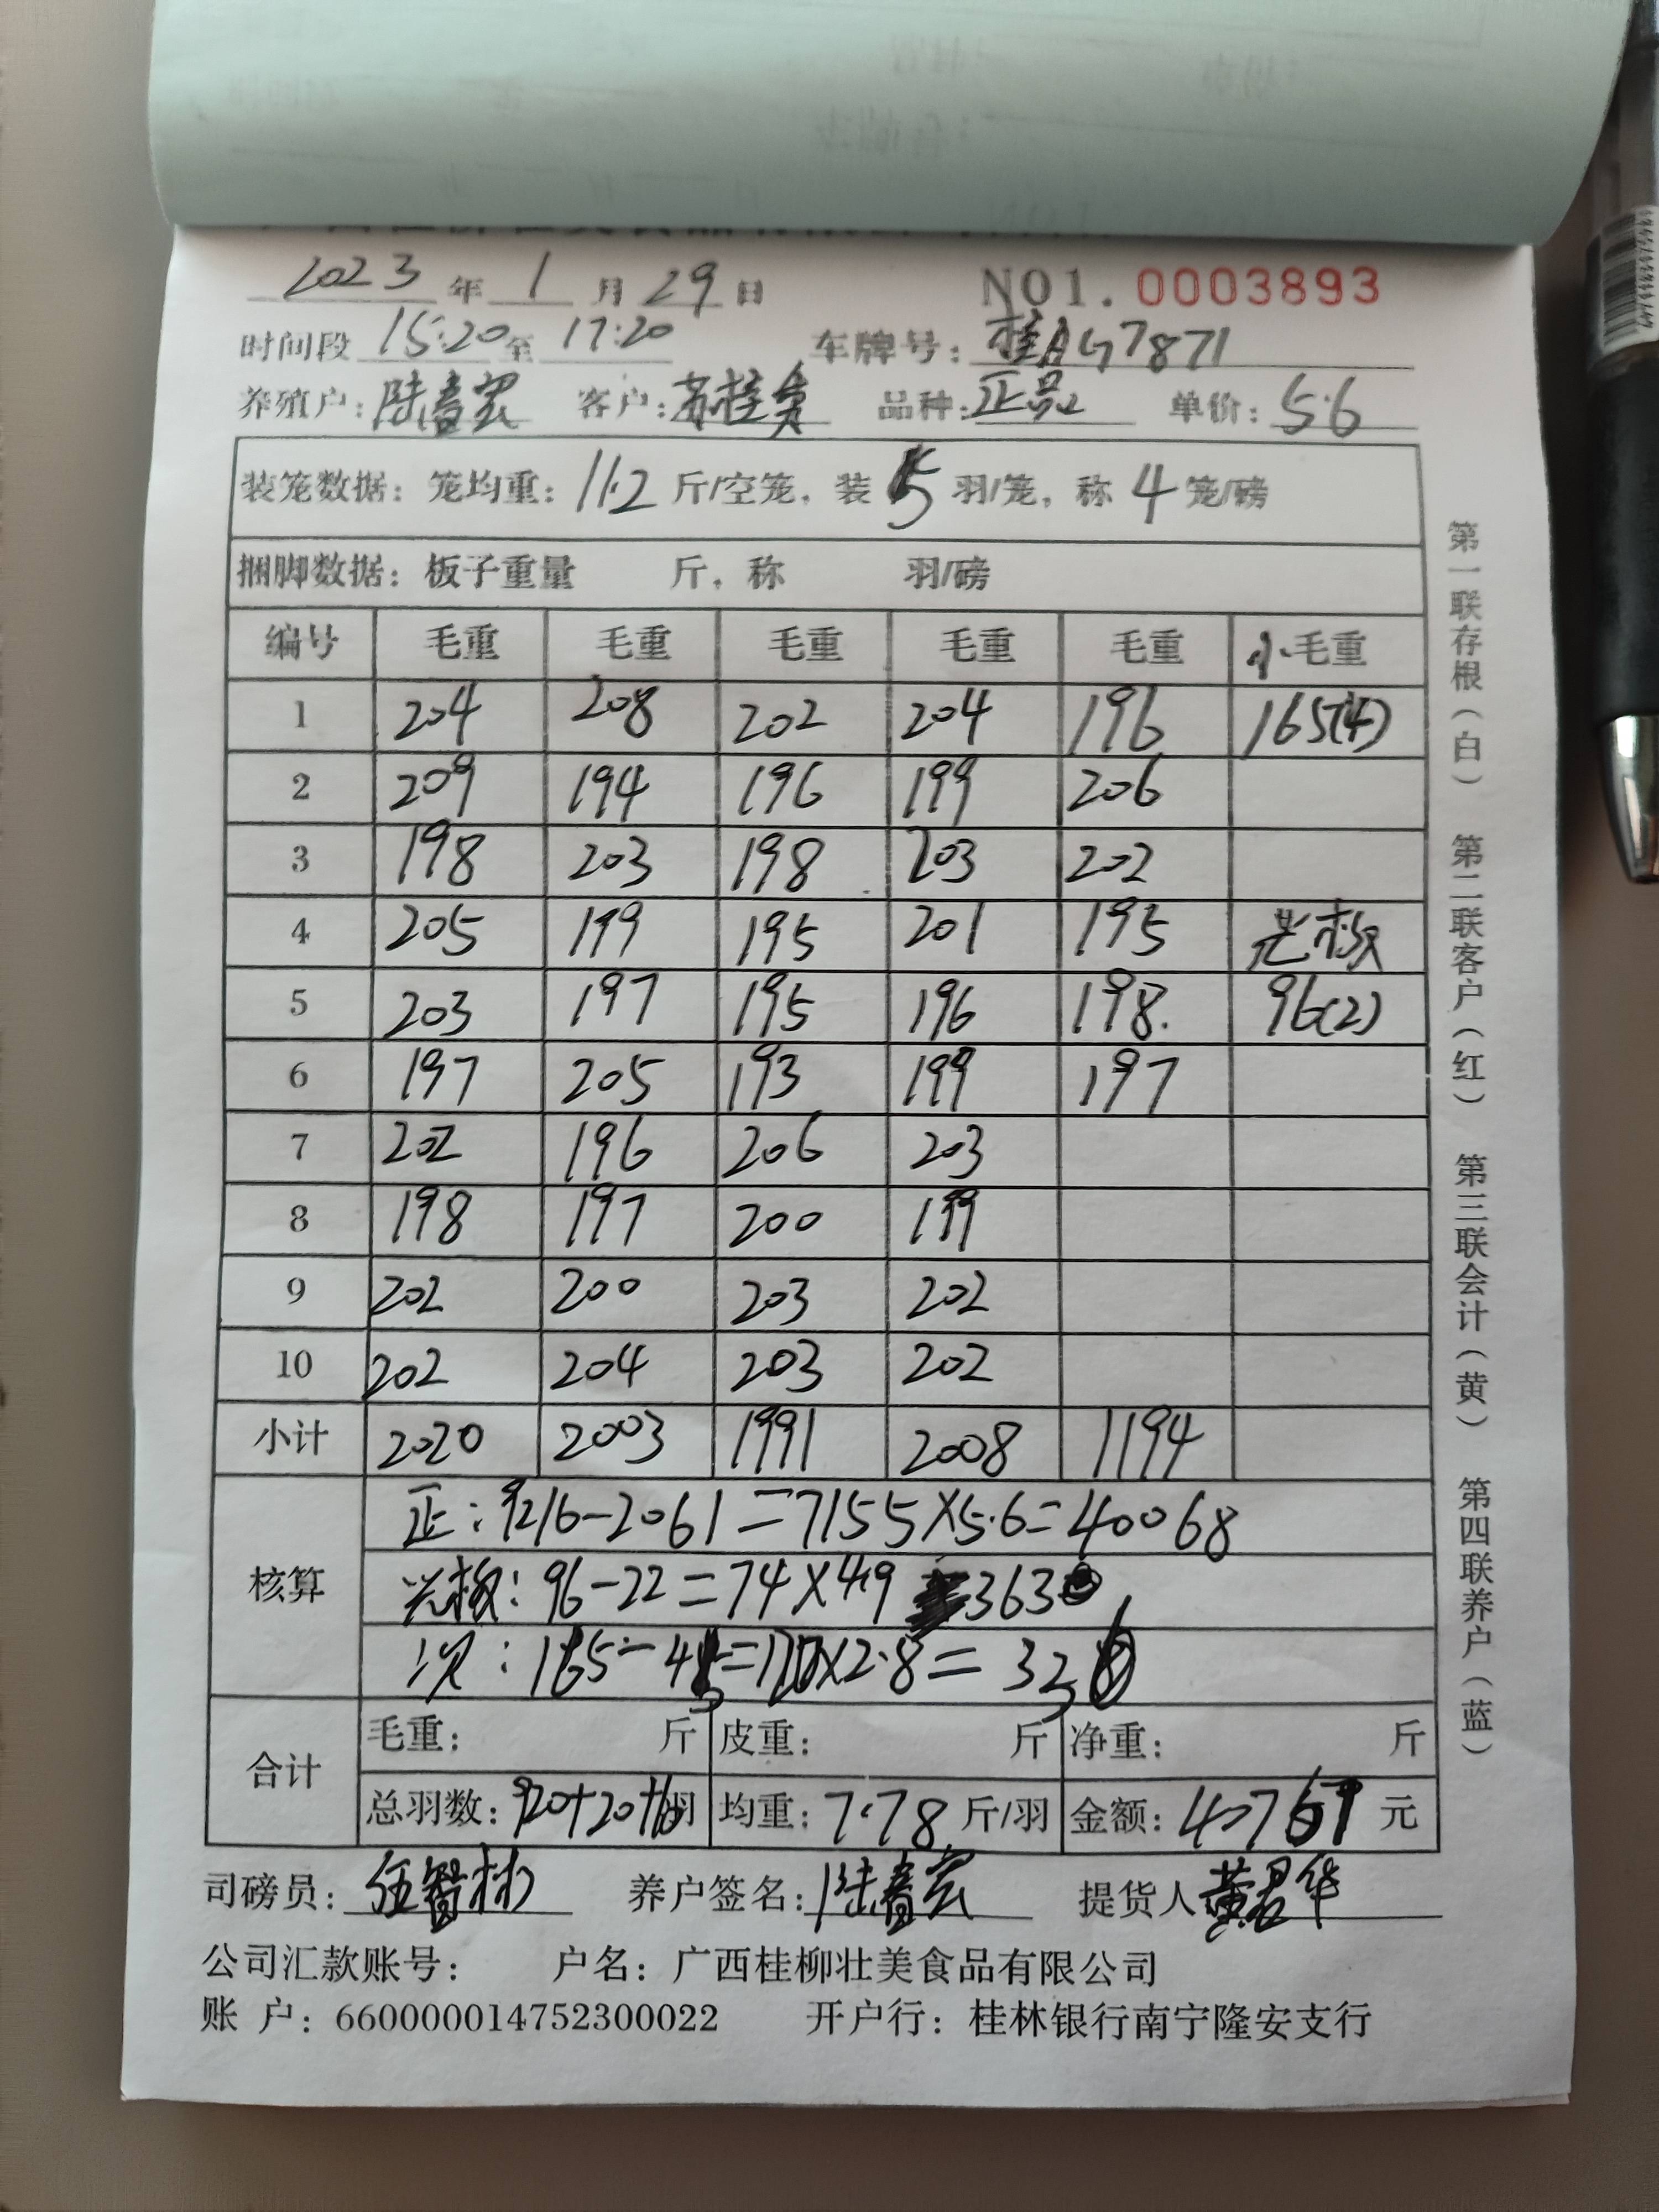 2023 年 1 月 29 日 NO1. 0003893
时间段 15:20 至 17:20 车牌号: 桂AG7871
养殖户: 陆春宏 客户: 苏桂 品种: 正品 单价: 5.6
装笼数据: 笼均重: 11.2 斤/空笼, 装 5 羽/笼, 称 4 笼/磅
捆脚数据: 板子重量 斤, 称 羽/磅
编号 毛重 毛重 毛重 毛重 毛重 小毛重
1 204 208 202 204 196 165(4)
2 209 194 196 199 206
3 198 203 198 203 202
4 205 199 195 201 195
5 203 197 195 196 198. 96(2)
6 197 205 193 199 197
7 202 196 206 203
8 198 197 200 199
9 202 200 203 202
10 202 204 203 202
小计 2020 2003 1991 2008 1194
核算
正: 9216-2061=7155×5.6=40068
96-22=74×4.9 363
次: 165-45=120×2.8=336
合计
毛重: 斤 皮重: 斤 净重: 斤
总羽数: 920+20+10羽 均重: 7.78 斤/羽 金额: 40767 元
司磅员: 伍智彬 养户签名: 陆春宏 提货人 黄君华
公司汇款账号: 户名: 广西桂柳壮美食品有限公司
账 户: 660000014752300022 开户行: 桂林银行南宁隆安支行
第一联存根(白) 第二联客户(红) 第三联会计(黄) 第四联养户(蓝)